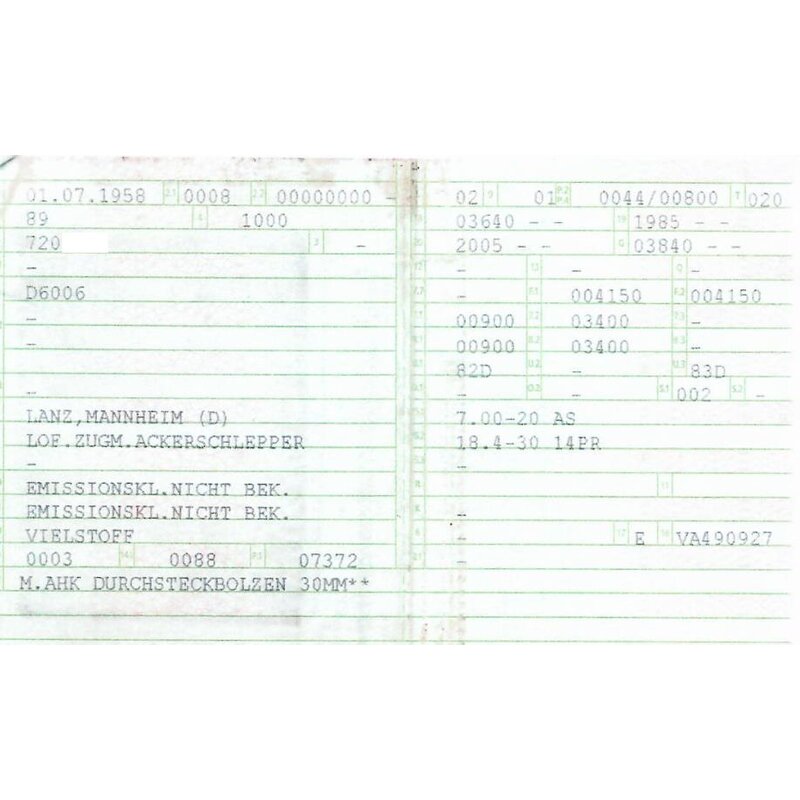 01.07.1958 2.1 0008 2.2 00000000 -
89 4 1000
720 3 -
-
D6006
-
-
-
LANZ,MANNHEIM (D)
LOF.ZUGM.ACKERSCHLEPPER
-
EMISSIONSKL.NICHT BEK.
EMISSIONSKL.NICHT BEK.
VIELSTOFF
0003 0088 P.1 07372
M.AHK DURCHSTECKBOLZEN 30MM**
02 9 01 P.2 P.4 0044/00800 T 020
18 03640 - - 19 1985 - -
20 2005 - - G 03840 - -
12 - 13 - Q -
- F.1 004150 F.2 004150
00900 03400 -
00900 03400 -
82D U.2 - U.3 83D
- O.2 - S.1 002 S.2 -
7.00-20 AS
18.4-30 14PR
-
R 11
K -
6 - 17 E 16 VA490927
21 -